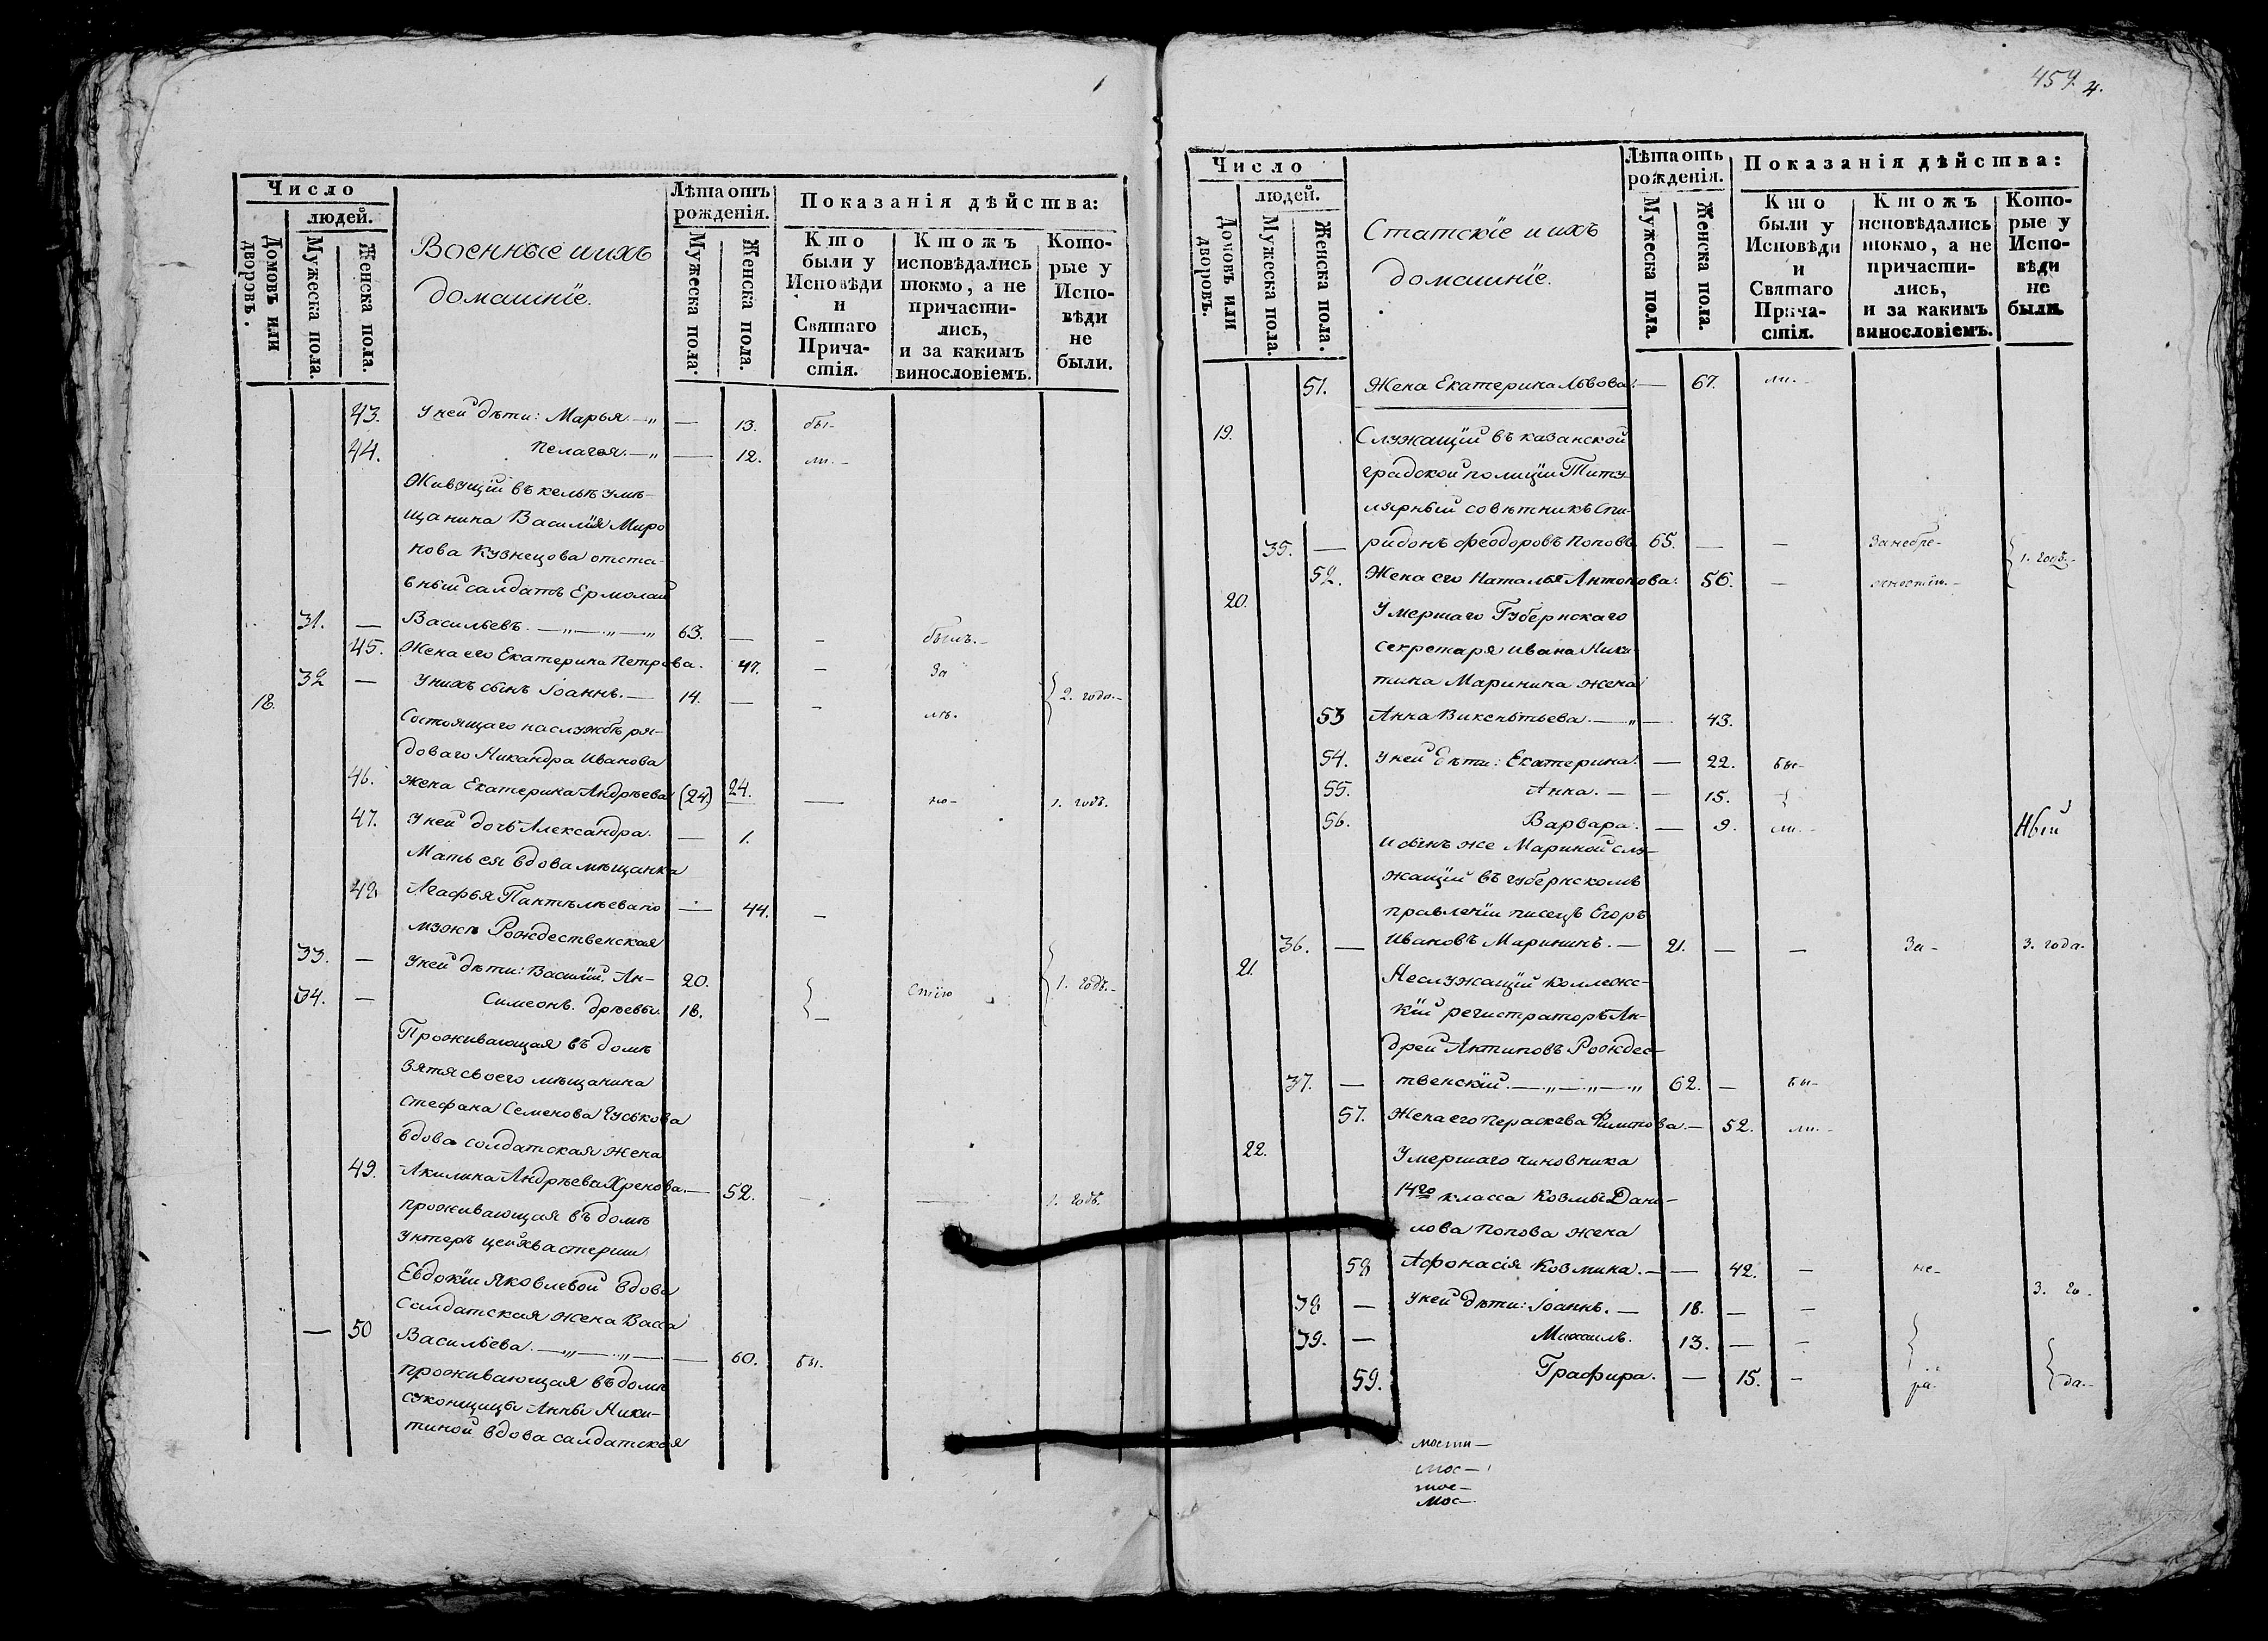 Число
людей.
Домовъ или дворовъ.
Мужеска пола.
Женска пола.
Военные и ихъ
домашніе.
Лѣта отъ
рожденія.
Мужеска пола.
Женска пола.
Показанія дѣйства:
Кто
были у
Исповѣди
и
Святаго
Прича-
стія.
Ктожъ
исповѣдались
токмо, а не
причасти-
лись,
и за какимъ
винословіемъ.
Кото-
рые у
Испо-
вѣди
не
были.
43. У ней дѣти: Марья.—„ — 13. бы-
44. Пелагея.—„ — 12. ли.-
Живущій въ кельѣ у мѣ-
щанина Василія Миро
нова Кузнецова отста-
вный салдатъ Ермолай
31. — Васильевъ.—„—„—„ 63. — - былъ.-
45. Жена его Екатерина Петрова. 47. - За
32 — У нихъ сынъ Іоаннъ.— 14. — - 2. года.-
18. Состоящаго на службѣ ря-
доваго Никандра Иванова
46. жена Екатерина Андрѣева (24) 24. — но- 1. годъ.
47. У ней дочь Александра. — 1.
Мать ея вдова мѣщанка
48 Агафья Пантѣлѣева по — 44. -
мужѣ Рождественская
33. — У ней дѣти: Василій, Ан- 20. 1. годъ.-
34. — Симеонъ. дрѣевы. 18. - стію
Проживающая въ домѣ
зятя своего мѣщанина
Стефана Семенова Гуськова
вдова солдатская жена
49. Акилина Андрѣева Хренова.— 52. - — 1. годъ.
проживающая въ домѣ
унтеръ цейхвастерши
Евдокіи Яковлевой вдова
салдатская жена Васса
— 50 Васильева.—„—„— — 60. бы.
проживающая въ домѣ
суконщицы Анны Ники-
тиной вдова салдатская
459. 4.
Число
людей.
Домовъ или дворовъ.
Мужеска пола.
Женска пола.
Статскіе и ихъ
домашніе.
Лѣта отъ
рожденія.
Мужеска пола.
Женска пола.
Показанія дѣйства:
Кто
были у
Исповѣди
и
Святаго
Прича-
стія.
Ктожъ
исповѣдались
токмо, а не
причасти-
лись,
и за какимъ
винословіемъ.
Кото-
рые у
Испо-
вѣди
не
были.
51. Жена Екатерина Львова.— 67. ли.-
19. Служащій въ казанской
градской полиціи Титу-
лярный совѣтникъ Спи-
35. — ридонъ Феодоровъ Поповъ. 65. — - За небре- 1. годъ.-
52. Жена его Наталья Антонова. 56. - жностію.-
20. Умершаго Губернскаго
секретаря Ивана Ники-
тина Маринина жена
53 Анна Викентьева.—„— 43.
54. У ней дѣти: Екатерина. — 22. бы-
55. Анна. — — 15.
56. Варвара. — 9. ли.-
и сынъ же Мариной слу-
жащій въ губернскомъ
правленіи писецъ Егоръ
36. — Ивановъ Марининъ. — 21. — - За- 3. года.
21. Неслужащій коллежс-
кій регистраторъ Ан-
дрей Антиповъ Рождес-
37. — твенскій.—„—„—„ 62. — бы-
57. Жена его Пераскева Филипова.— 52. ли.-
22. Умершаго чиновника
14го класса Козмы Дани-
лова Попова жена
58 Афонасія Козмина.— — 42. - не-
38 — У ней дѣти: Іоаннъ. — 18. — - 3. го-
39. — Михаилъ. 13. — -
59. Графира. — 15. - ра. да.-
мости—
мос—
мос—